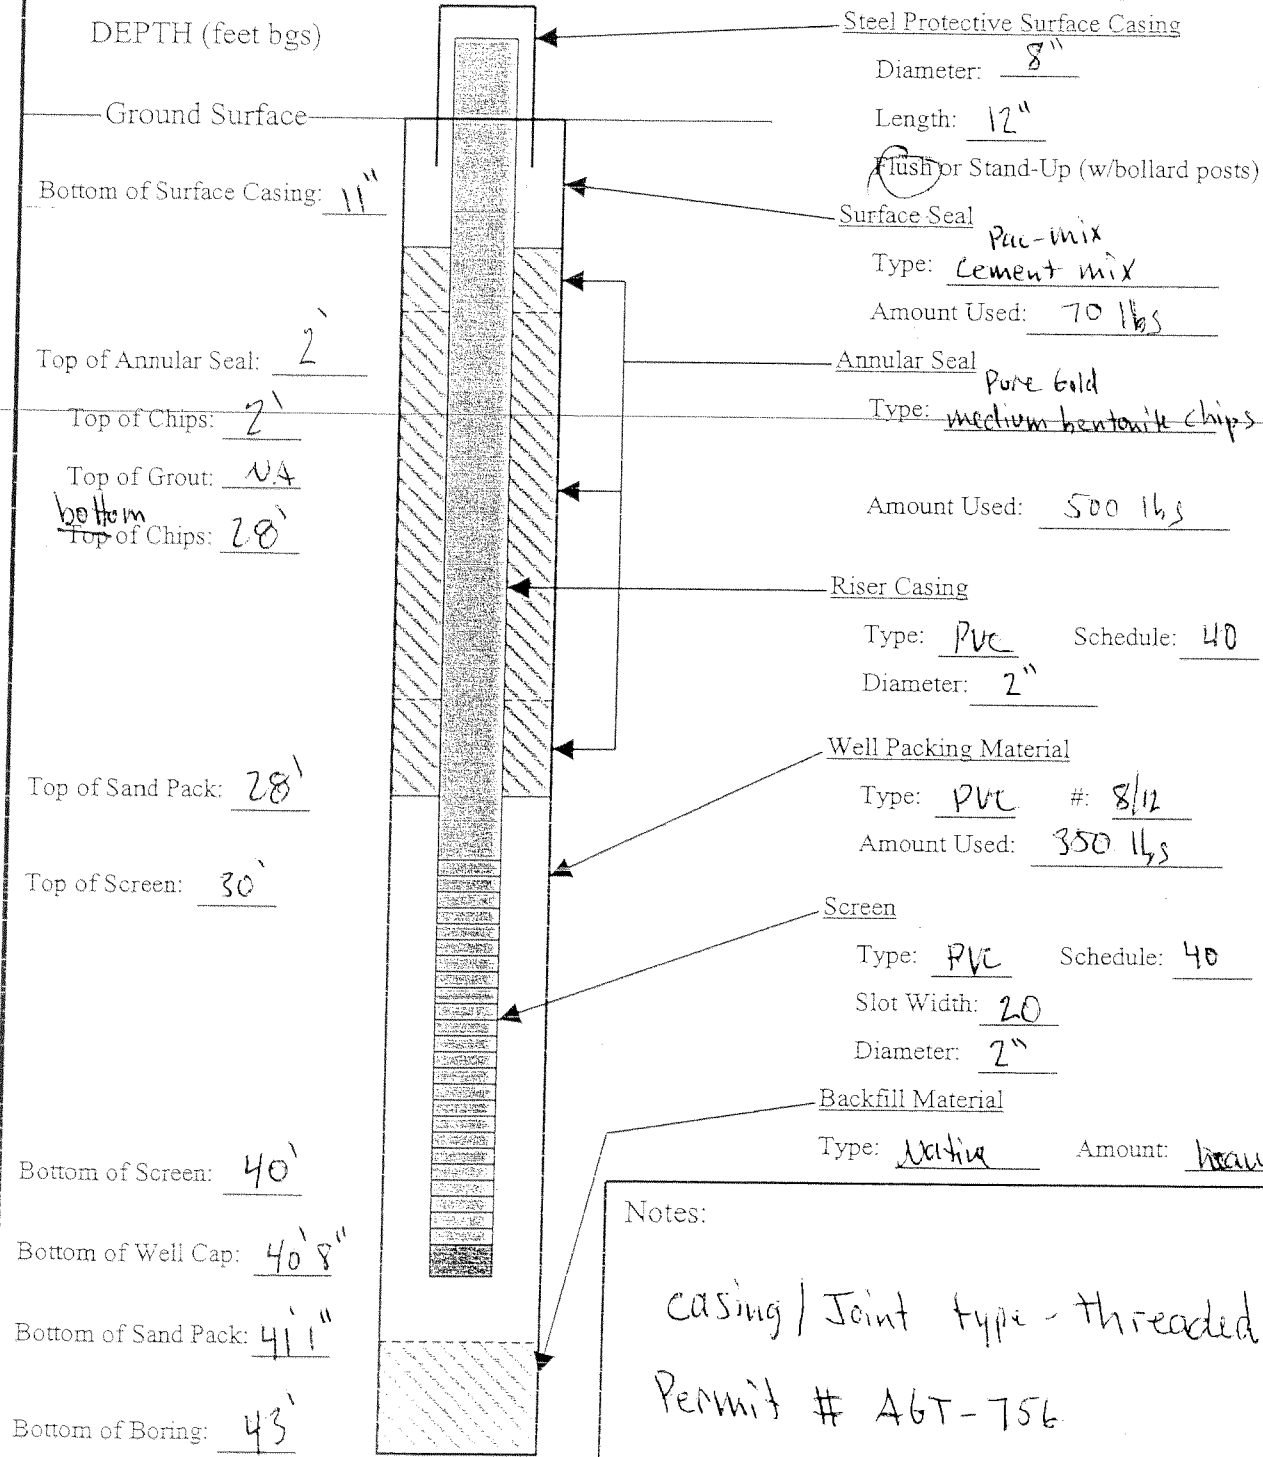 DEPTH (feet bgs)
Ground Surface
Bottom of Surface Casing: 11"
Top of Annular Seal: 2'
Top of Chips: 2'
Top of Grout: NA
bottom
Top of Chips: 28'
Top of Sand Pack: 28'
Top of Screen: 30'
Bottom of Screen: 40'
Bottom of Well Cap: 40' 8"
Bottom of Sand Pack: 41' 1"
Bottom of Boring: 43'
Steel Protective Surface Casing
Diameter: 8"
Length: 12"
Flush or Stand-Up (w/bollard posts)
Surface Seal
Pac-mix
Type: Cement mix
Amount Used: 70 lbs
Annular Seal
Pure Gold
Type: medium bentonite chips
Amount Used: 500 lbs
Riser Casing
Type: PVC Schedule: 40
Diameter: 2"
Well Packing Material
Type: PVC #: 8/12
Amount Used: 350 lbs
Screen
Type: PVC Schedule: 40
Slot Width: 20
Diameter: 2"
Backfill Material
Type: Native Amount:
Notes:
casing / Joint type - threaded
Permit # AGT-756